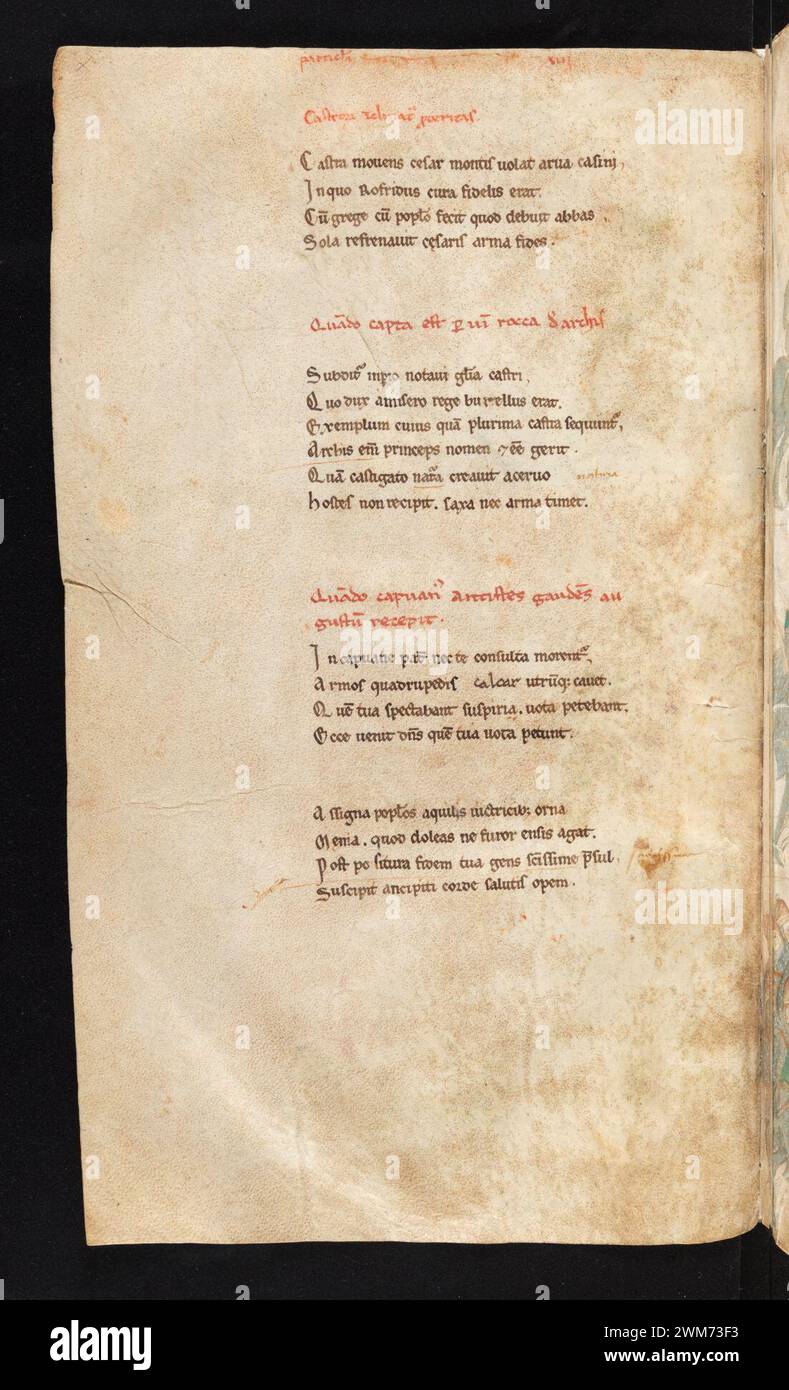 particula xiiij
Castra mouens cesar montis uolat arua casini,
In quo Rofridus cura fidelis erat.
Cū grege cū popl̄o fecit quod debuit abbas.
Sola refrenauit cęsaris arma fides.
Quādo capta est ꝑ uī rocca d̄ archis
Subdit᷒ inpio notaui gl̄ia castri,
Quo dux amisero rege burrellus erat.
Exemplum cuius quā plurima castra sequunt᷒,
Archis em̄ princeps nomen ⁊ ēē gerit.
Quā castigato nat̄a creauit aceruo natura
hostes non recipit. saxa nec arma timet.
Quādo capuan᷒ antistes gaudēs au
gustū recepit.
In capuane pat̄ nec te consulta morent᷒,
Armos quadrupedis calcar utrūq; cauet.
Quē tua spectabant suspiria. uota petebant.
Ecce uenit dn̄s quē tua uota petunt.
Assigna popl̄os aquilis uictricib; orna
Menia. quod doleas ne furor ensis agat.
Post po situra fidem tua gens scissime p̄sul,
Suscipit ancipiti corde salutis opem.
alamy
Image ID: 2WM73F3
www.alamy.com